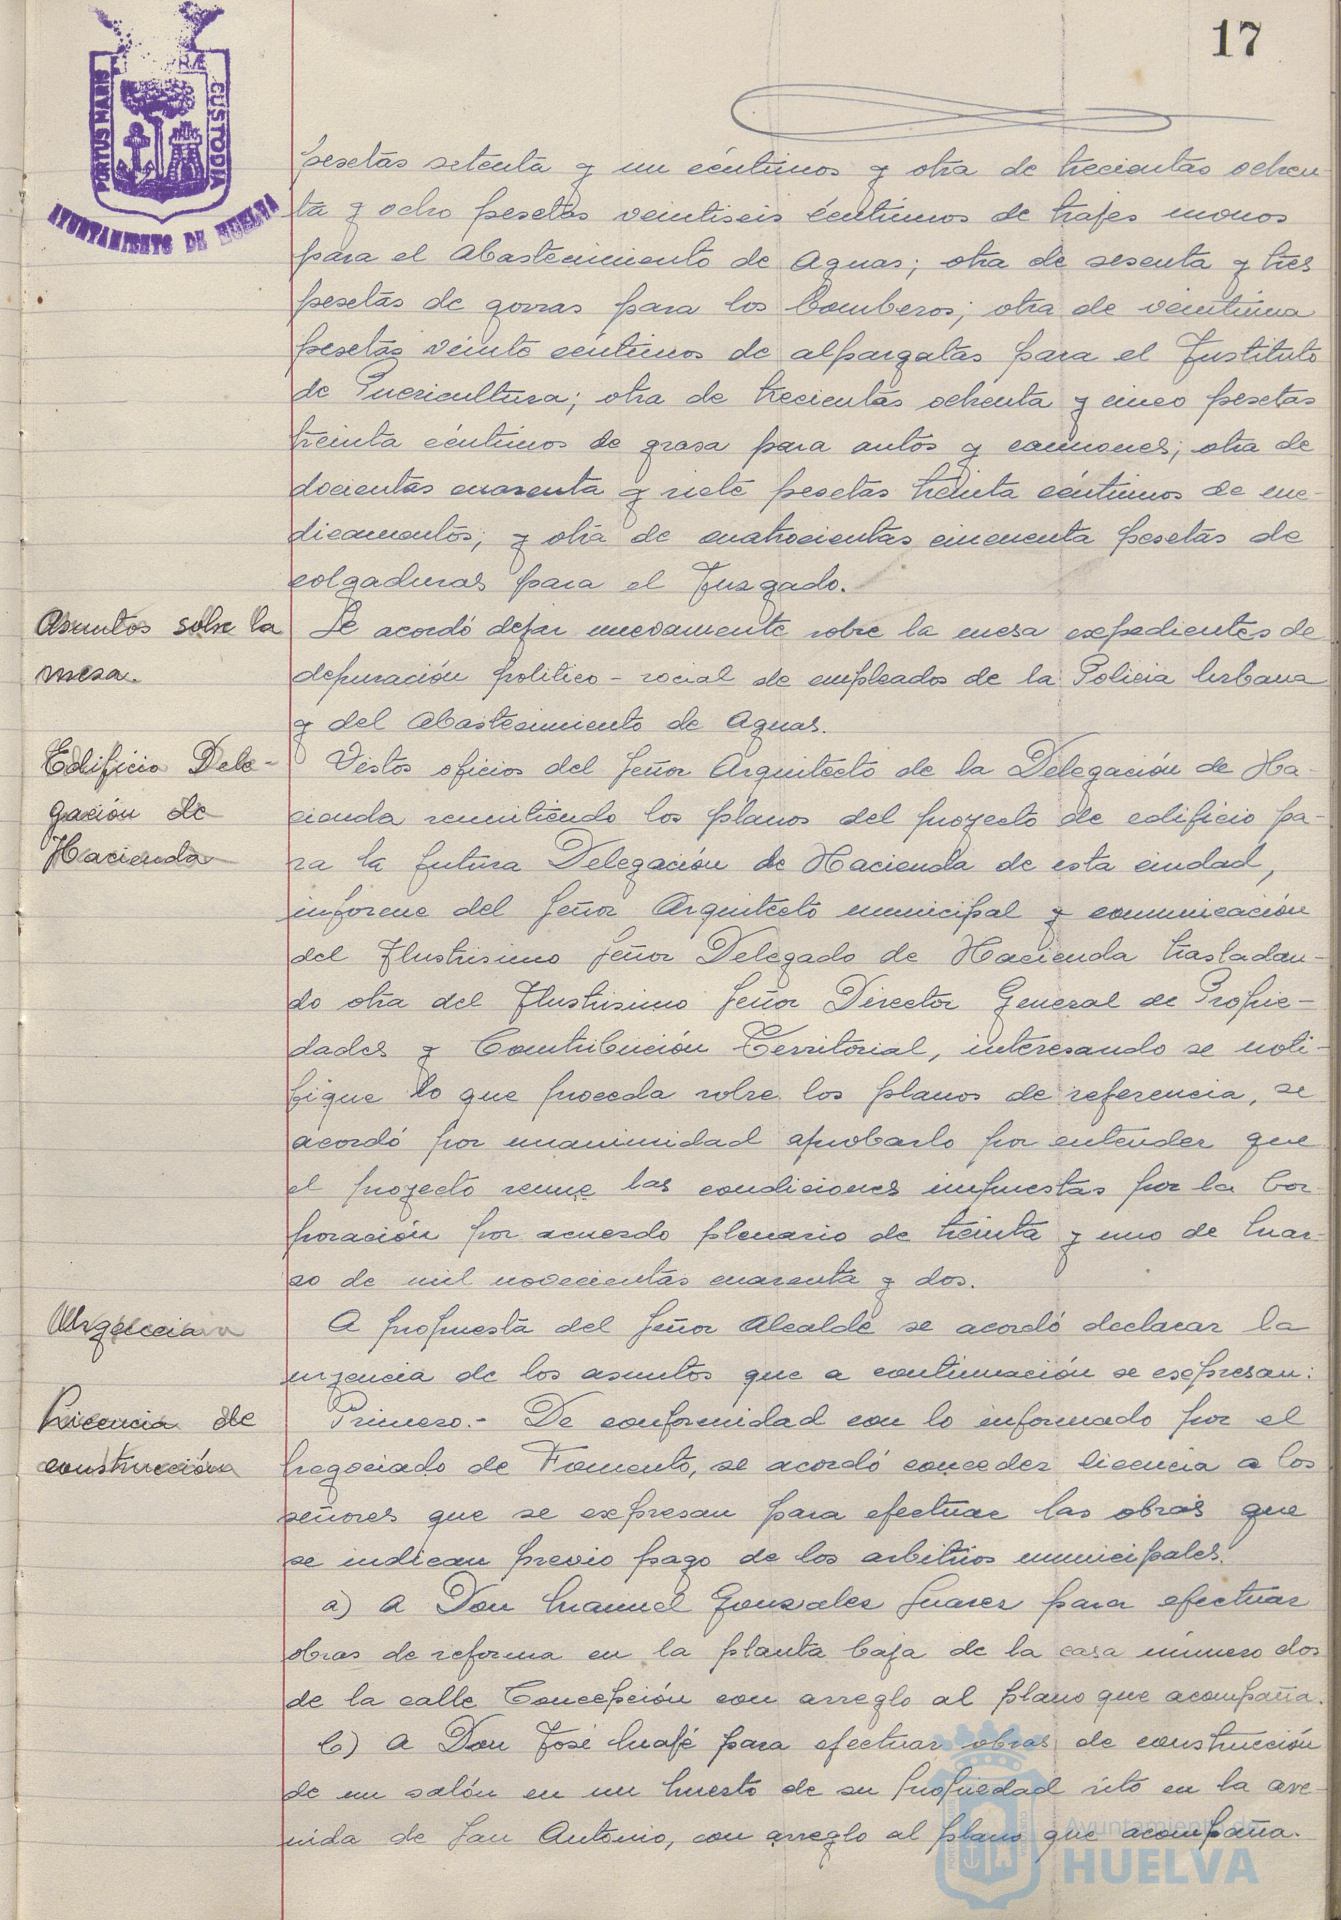 17
PORTUS MARIS
CUSTODIA
AYUNTAMIENTO DE HUELVA
pesetas setenta y un céntimos y otra de trecientas ochen-
ta y ocho pesetas veintiseis céntimos de trajes monos
para el Abastecimiento de Aguas; otra de sesenta y tres
pesetas de gorras para los Bomberos; otra de veintiuna
pesetas veinte céntimos de alpargatas para el Instituto
de Puericultura; otra de trecientas ochenta y cinco pesetas
treinta céntimos de grasa para autos y camiones; otra de
docientas cuarenta y siete pesetas treinta céntimos de me-
dicamentos; y otra de cuatrocientas cincuenta pesetas de
colgaduras para el Juzgado.
Asuntos sobre la
mesa.
Se acordó dejar nuevamente sobre la mesa expedientes de
depuración politico-social de empleados de la Policia Urbana
y del Abastecimiento de Aguas.
Edificio Dele-
gación de
Hacienda
Vistos oficios del Señor Arquitecto de la Delegación de Ha-
cienda remitiendo los planos del proyecto de edificio pa-
ra la futura Delegación de Hacienda de esta ciudad,
informe del Señor Arquitecto municipal y comunicación
del Ilustrisimo Señor Delegado de Hacienda trasladan-
do otra del Ilustrisimo Señor Director General de Propie-
dades y Contribución Territorial, interesando se noti-
fique lo que proceda sobre los planos de referencia, se
acordó por unanimidad aprobarlo por entender que
el proyecto reune las condiciones impuestas por la Cor-
poración por acuerdo plenario de treinta y uno de Mar-
zo de mil novecientas cuarenta y dos.
Urgencia
A propuesta del Señor Alcalde se acordó declarar la
urgencia de los asuntos que a continuación se expresan:
Licencia de
construcción
Primero.- De conformidad con lo informado por el
Negociado de Fomento, se acordó conceder licencia a los
señores que se expresan para efectuar las obras que
se indican previo pago de los arbitrios municipales.
a) A Don Manuel Gonzales Suares para efectuar
obras de reforma en la planta baja de la casa número dos
de la calle Concepción con arreglo al plano que acompaña.
b) A Don José Mafé para efectuar obras de construcción
de un salón en un huerto de su propiedad sito en la ave-
nida de San Antonio, con arreglo al plano que acompaña.
Ayuntamiento de
HUELVA